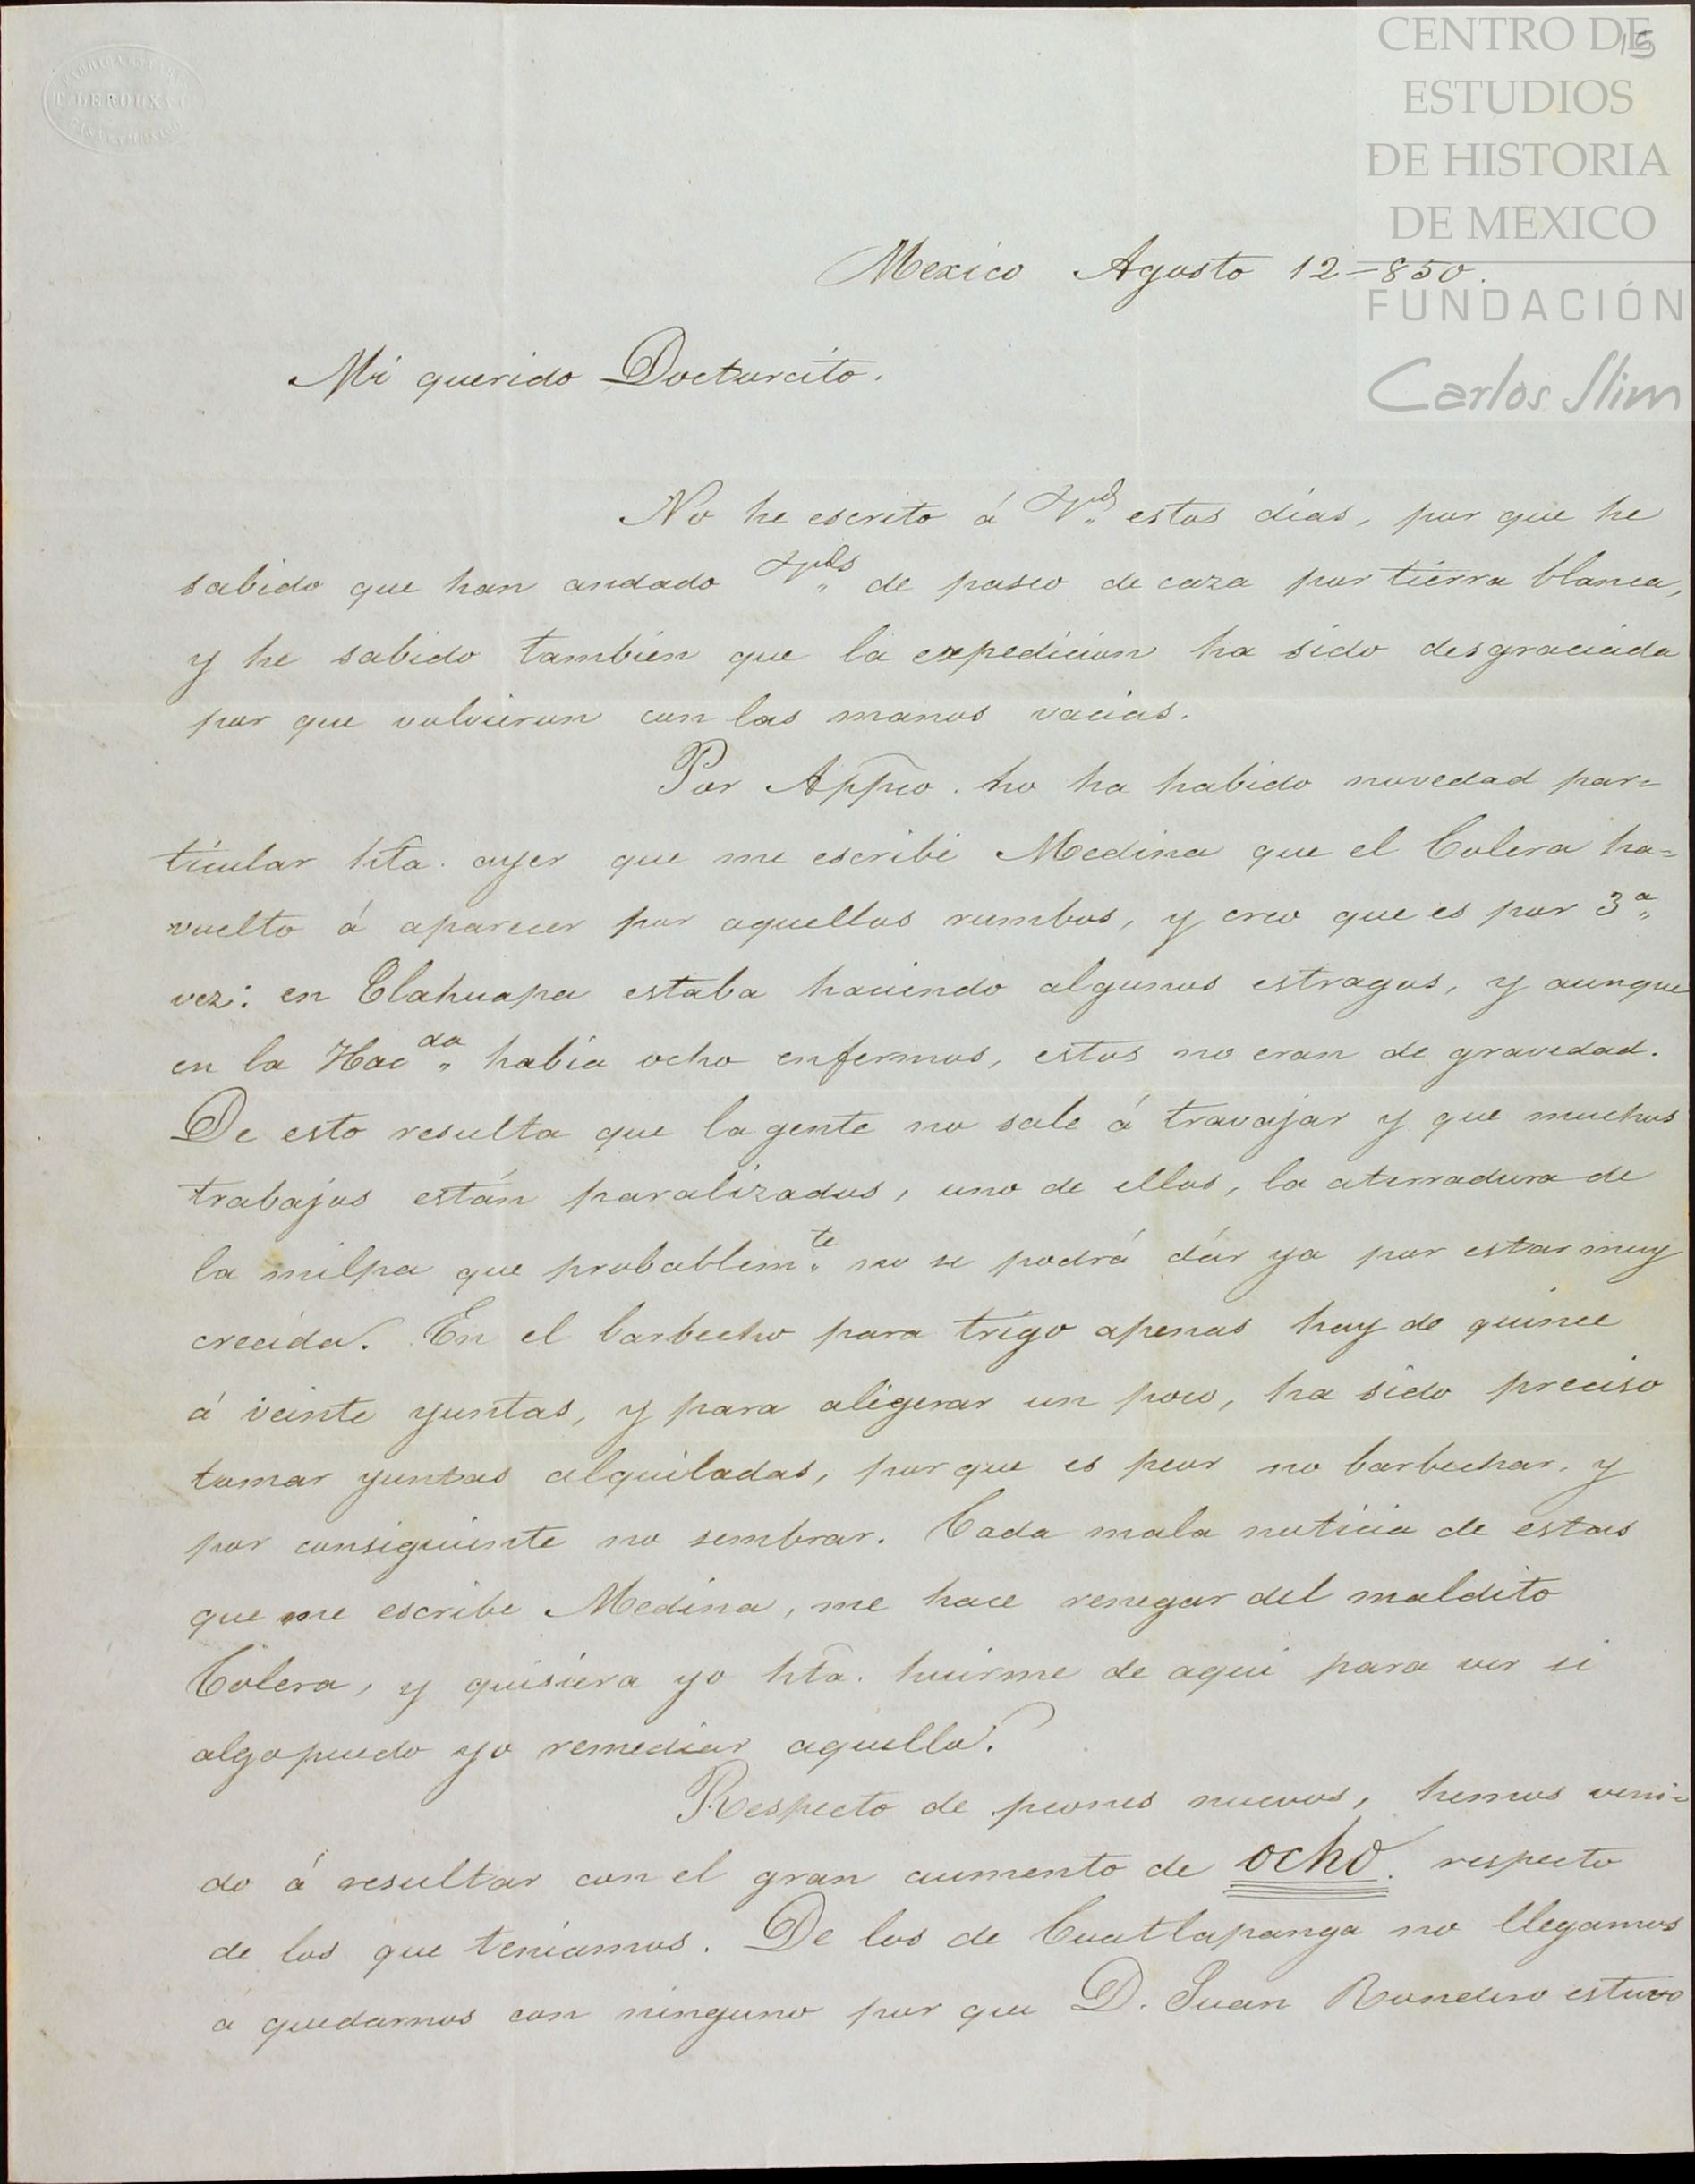 CENTRO DE
ESTUDIOS
DE HISTORIA
DE MEXICO
FUNDACIÓN
Carlos Slim
15
Mexico Agosto 12-850.
Mi querido Doctorcito.
No he escrito á V.d estos dias, por que he
sabido que han andado V.ds de paseo de caza por tierra blanca,
y he sabido tambien que la expedicion ha sido desgraciada
por que volvieron con las manos vacias.
Por Appco. no ha habido novedad par=
ticular hta. ayer que me escribe Medina que el Colera ha=
vuelto á aparecer por aquellos rumbos, y creo que es por 3.a
vez: en Tlahuapa estaba haciendo algunos estragos, y aunque
en la Hac.da habia ocho enfermos, estos no eran de gravedad.
De esto resulta que la gente no sale á travajar y que muchos
trabajos están paralizados, uno de ellos, la aterradura de
la milpa que probablem.te no se podrá dár ya por estar muy
crecida. En el barbecho para trigo apenas hay de quince
á veinte yuntas, y para aligerar un poco, ha sido preciso
tomar yuntas alquiladas, porque es peor no barbechar, y
por consiguiente no sembrar. Cada mala noticia de estas
que me escribe Medina, me hace renegar del maldito
Colera, y quisiera yo hta. huirme de aqui para ver si
algo puedo yo remediar aquello.
Respecto de peones nuevos, hemos veni=
do á resultar con el gran aumento de ocho. respecto
de los que teniamos. De los de Cuatlapanga no llegamos
a quedarnos con ninguno por que D. Juan Rondero estuvo